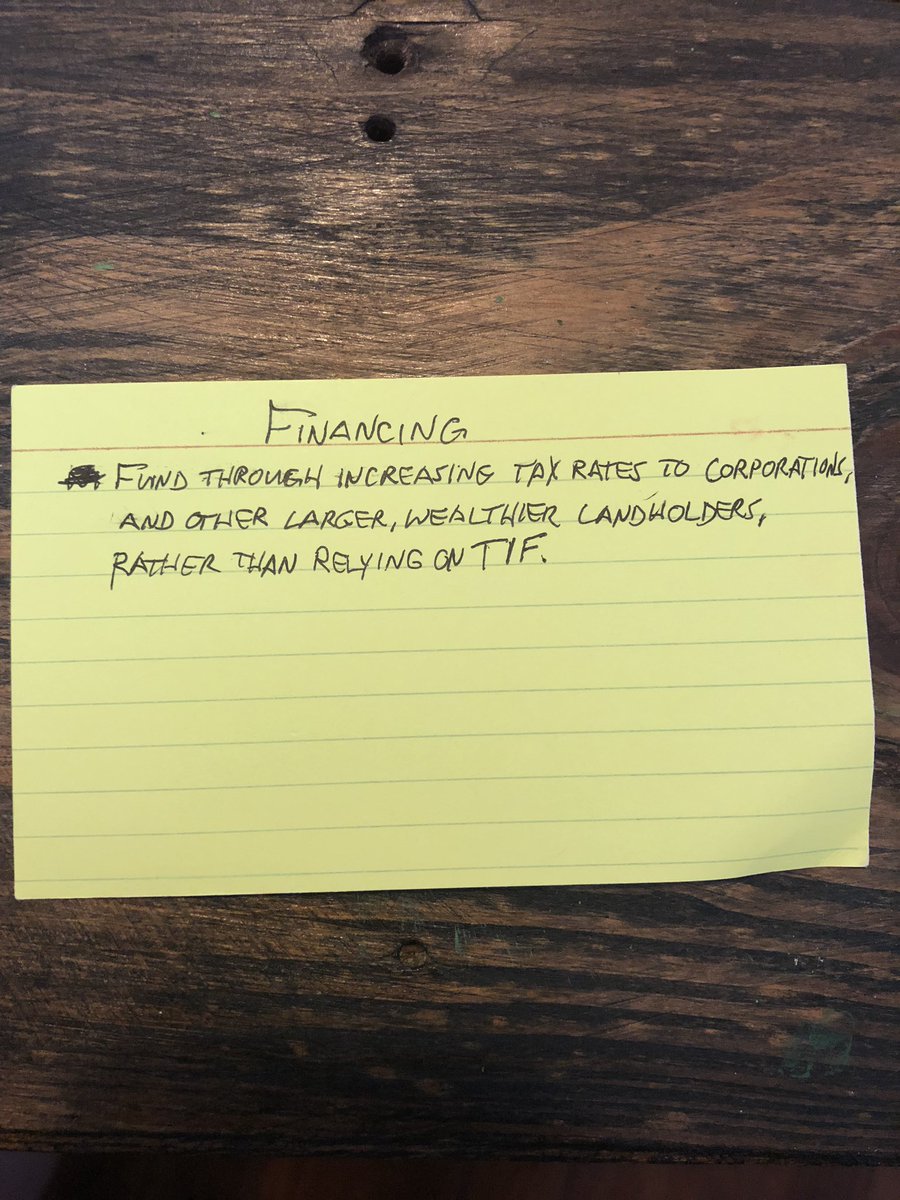 FINANCING
FUND THROUGH INCREASING TAX RATES TO CORPORATIONS,
AND OTHER LARGER, WEALTHIER LANDHOLDERS,
RATHER THAN RELYING ON TIF.